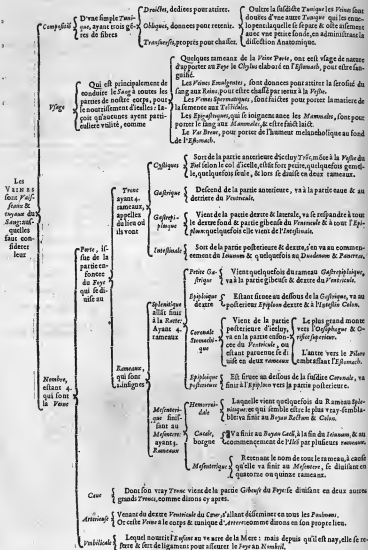 Les
VEINES
sont Vaisseaux &
tuyaux du
Sang: ausquelles
faut considérer
leur
Composition
D'vne simple Tunique,
ayant trois gẽres
de fibres
Droictes, dediees pour attirer.
Obliques, donnees pour retenir.
Transuerses, propres pour chasser.
Oultre la susdicte Tunique les Veines sont
doubs d'vne autre Tunique qui les enueloppe:
laquelle se separe & oste aisement
avec vne petite sonde, en administrant la
dissection Anatomique.
Vsage
Qui est principalement de
conduire le Sang à toutes les
parties de nostre corps, pour
le nourrissement d'icelles:
çoit qu'aucunes ayent particuliere
vtilité, comme
Quelques rameaux de la Veine Porte, ont esté vsage de nature
d'apporter au Foye le Chylus elaboré en l'Estomach, pour estre sanguifié.
Les Veines Emulgentes, sont donnees pour attirer la serosité du
sang aux Reins, pour estre chassé par iceux à la Vessie.
Les Veines Spermatiques, sont faictes pour porter la matiere de
la semence aux Testicules.
Les Epigastriques, qui se ioignent auec les Mammales, sont pour
porter le sang aux Mammales, & estre faict laict.
Le Vas Breue, pour porter de l'humeur melancholique au fond
de l'Estomach.
Nombre,
estant 4.
qui sont
la Veine
Porte, issue
de la partie
enfoncee
du Foye
qui se diuise
au
Tronc
ayant 4.
rameaux,
appellez
du lieu où
ils vont
Cystiques
Sort de la partie anterieure d'iceluy Tróc, mõte à la Vessie du
Fiel selon le col d'icelle, estãt fort petite, quelquefois gemelle,
quelquefois seule, & lors se diuise en deux rameaux.
Gastrique
Descend de la partie anterieure, va à la partie caue & au
derriere du Ventricule.
Gastrepiploique
Vient de la partie dextre & laterale, va se respandre à tout
le dextre fond & partie gibeuse du Ventricule & à tout l'Epiploon:
quelquefois elle vient de l'Intestinale.
Intestinale
Sort de la partie posterieure & dextre, s'en va au commencement
du Ieiunum & quelquefois au Duodenum & Pancreas.
Rameaux,
qui sont
insignes
Splenitique
allãt finir
à la Ratte:
Ayant 4.
rameaux
Petite Gastrique
Vient quelquefois du rameau Gastrepiploique,
va à la partie gibeuse & dextre du Ventricule.
Epiploique
dextre
Estant situee au dessous de la Gastrique, va au
posterieur Epiploon dextre & à l'Intestin Colon.
Coronale
Stomachique
Vient de la partie
posterieure d'iceluy,
va en la partie enfoncee
du Ventricule, où
estant paruenue se diuise
en deux rameaux
Le plus grand monte
vers l'Oesophague & Orifice
superieur.
L'autre vers le Pilore
embrassant l'Estomach.
Epiploique
posterieure
Est située au dessous de la susdite Coronale, va
finir à l'Epiploon vers la partie posterieure.
Mesenterique
finissant
au
Mesentere:
ayant 3.
Rameaux
Hemorroidale
Laquelle vient quelquefois du Rameau Splenitique:
ce qui semble estre le plus vray-semblable:
va finir au Boyau Rectum & Colon.
Cecale,
borgne
Va finir au Boyau Cæcũ, à la fin du Ieiunum, & au
commencement de l'Ileõ par plusieurs rameaux.
Mesenterique
Retenant le nom de tout le rameau, à cause
qu'elle va finir au Mesentere, se diuisant en
quatorze ou quinze rameaux.
Caue
Dont son vray Tronc vient de la partie Gibeuse du Foye: se diuisant en deux autres
grands Troncs, comme dirons cy apres.
Arterieuse
Venant du dextre Ventricule du Cœur, s'allant disseminer en tous les Poulmons.
Or ceste Veine à le corps & tunique d'Artere: comme dirons en son propre lieu.
Vmbilicale
Lequel nourrit l'Enfant au ventre de la Mere: mais depuis qu'il est nay, elle se reserre
& sert de ligament pour asseurer le Foye au Nombril.